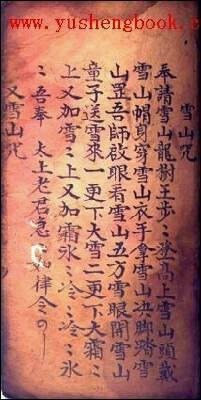 www.yushengbook.
雪山咒
奉請雪山龍樹王步〻逐高上雪山頭戴
雪山帽身穿雪山衣手拿雪山决脚踏雪
山罡吾師啟眼看雪山五方雪眼開雪山
童子送雪來一更下大雪二更下大霜〻
上又加雪〻上又加霜氷〻冷〻冷〻氷
〻吾奉 太上老君急 如律令
又雪山咒